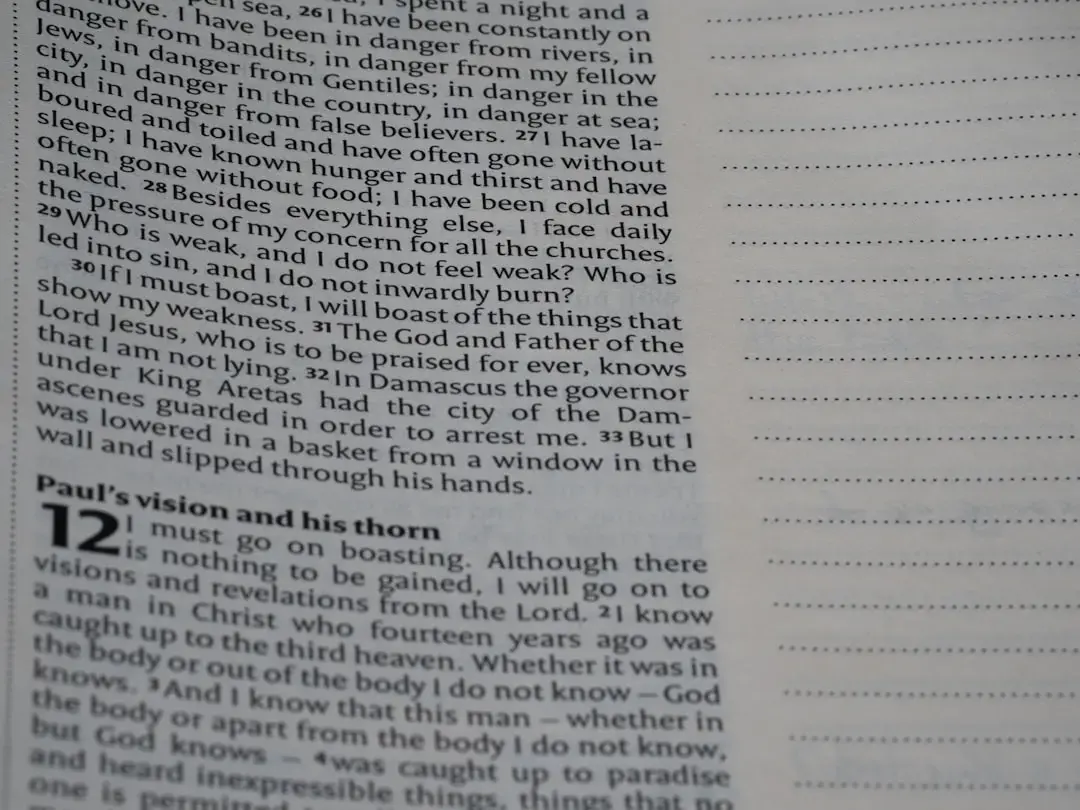 I spent a night and a
sea, 26 I have been constantly on
move. I have been in danger from rivers, in
danger from bandits, in danger from my fellow
Jews, in danger from Gentiles; in danger in the
city, in danger in the country, in danger at sea;
and in danger from false believers. 27 I have la-
boured and toiled and have often gone without
sleep; I have known hunger and thirst and have
often gone without food; I have been cold and
naked. 28 Besides everything else, I face daily
the pressure of my concern for all the churches.
29 Who is weak, and I do not feel weak? Who is
led into sin, and I do not inwardly burn?
30 If I must boast, I will boast of the things that
show my weakness. 31 The God and Father of the
Lord Jesus, who is to be praised for ever, knows
that I am not lying. 32 In Damascus the governor
under King Aretas had the city of the Dam-
ascenes guarded in order to arrest me. 33 But I
was lowered in a basket from a window in the
wall and slipped through his hands.
Paul's vision and his thorn
12 I must go on boasting. Although there
is nothing to be gained, I will go on to
visions and revelations from the Lord. 2 I know
a man in Christ who fourteen years ago was
caught up to the third heaven. Whether it was in
the body or out of the body I do not know – God
knows. 3 And I know that this man – whether in
the body or apart from the body I do not know,
but God knows – 4 was caught up to paradise
and heard inexpressible things, things that no
one is permitted